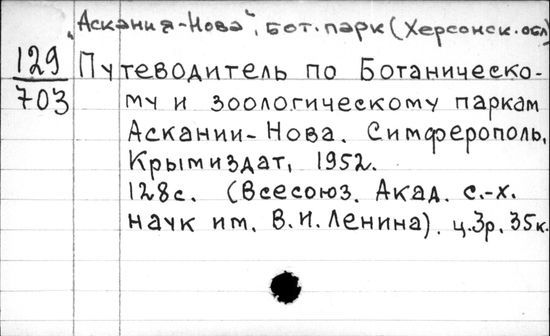 „Аскания-Нова", Бот. парк (Херсонск. обл)
129
703
Путеводитель по Ботаническо-
му и зоологическому паркам
Аскании-Нова. Симферополь,
Крымиздат, 1952.
128с. (Всесоюз. Акад. с.-х.
наук им. В.И. Ленина). ц. 3р. 35к.